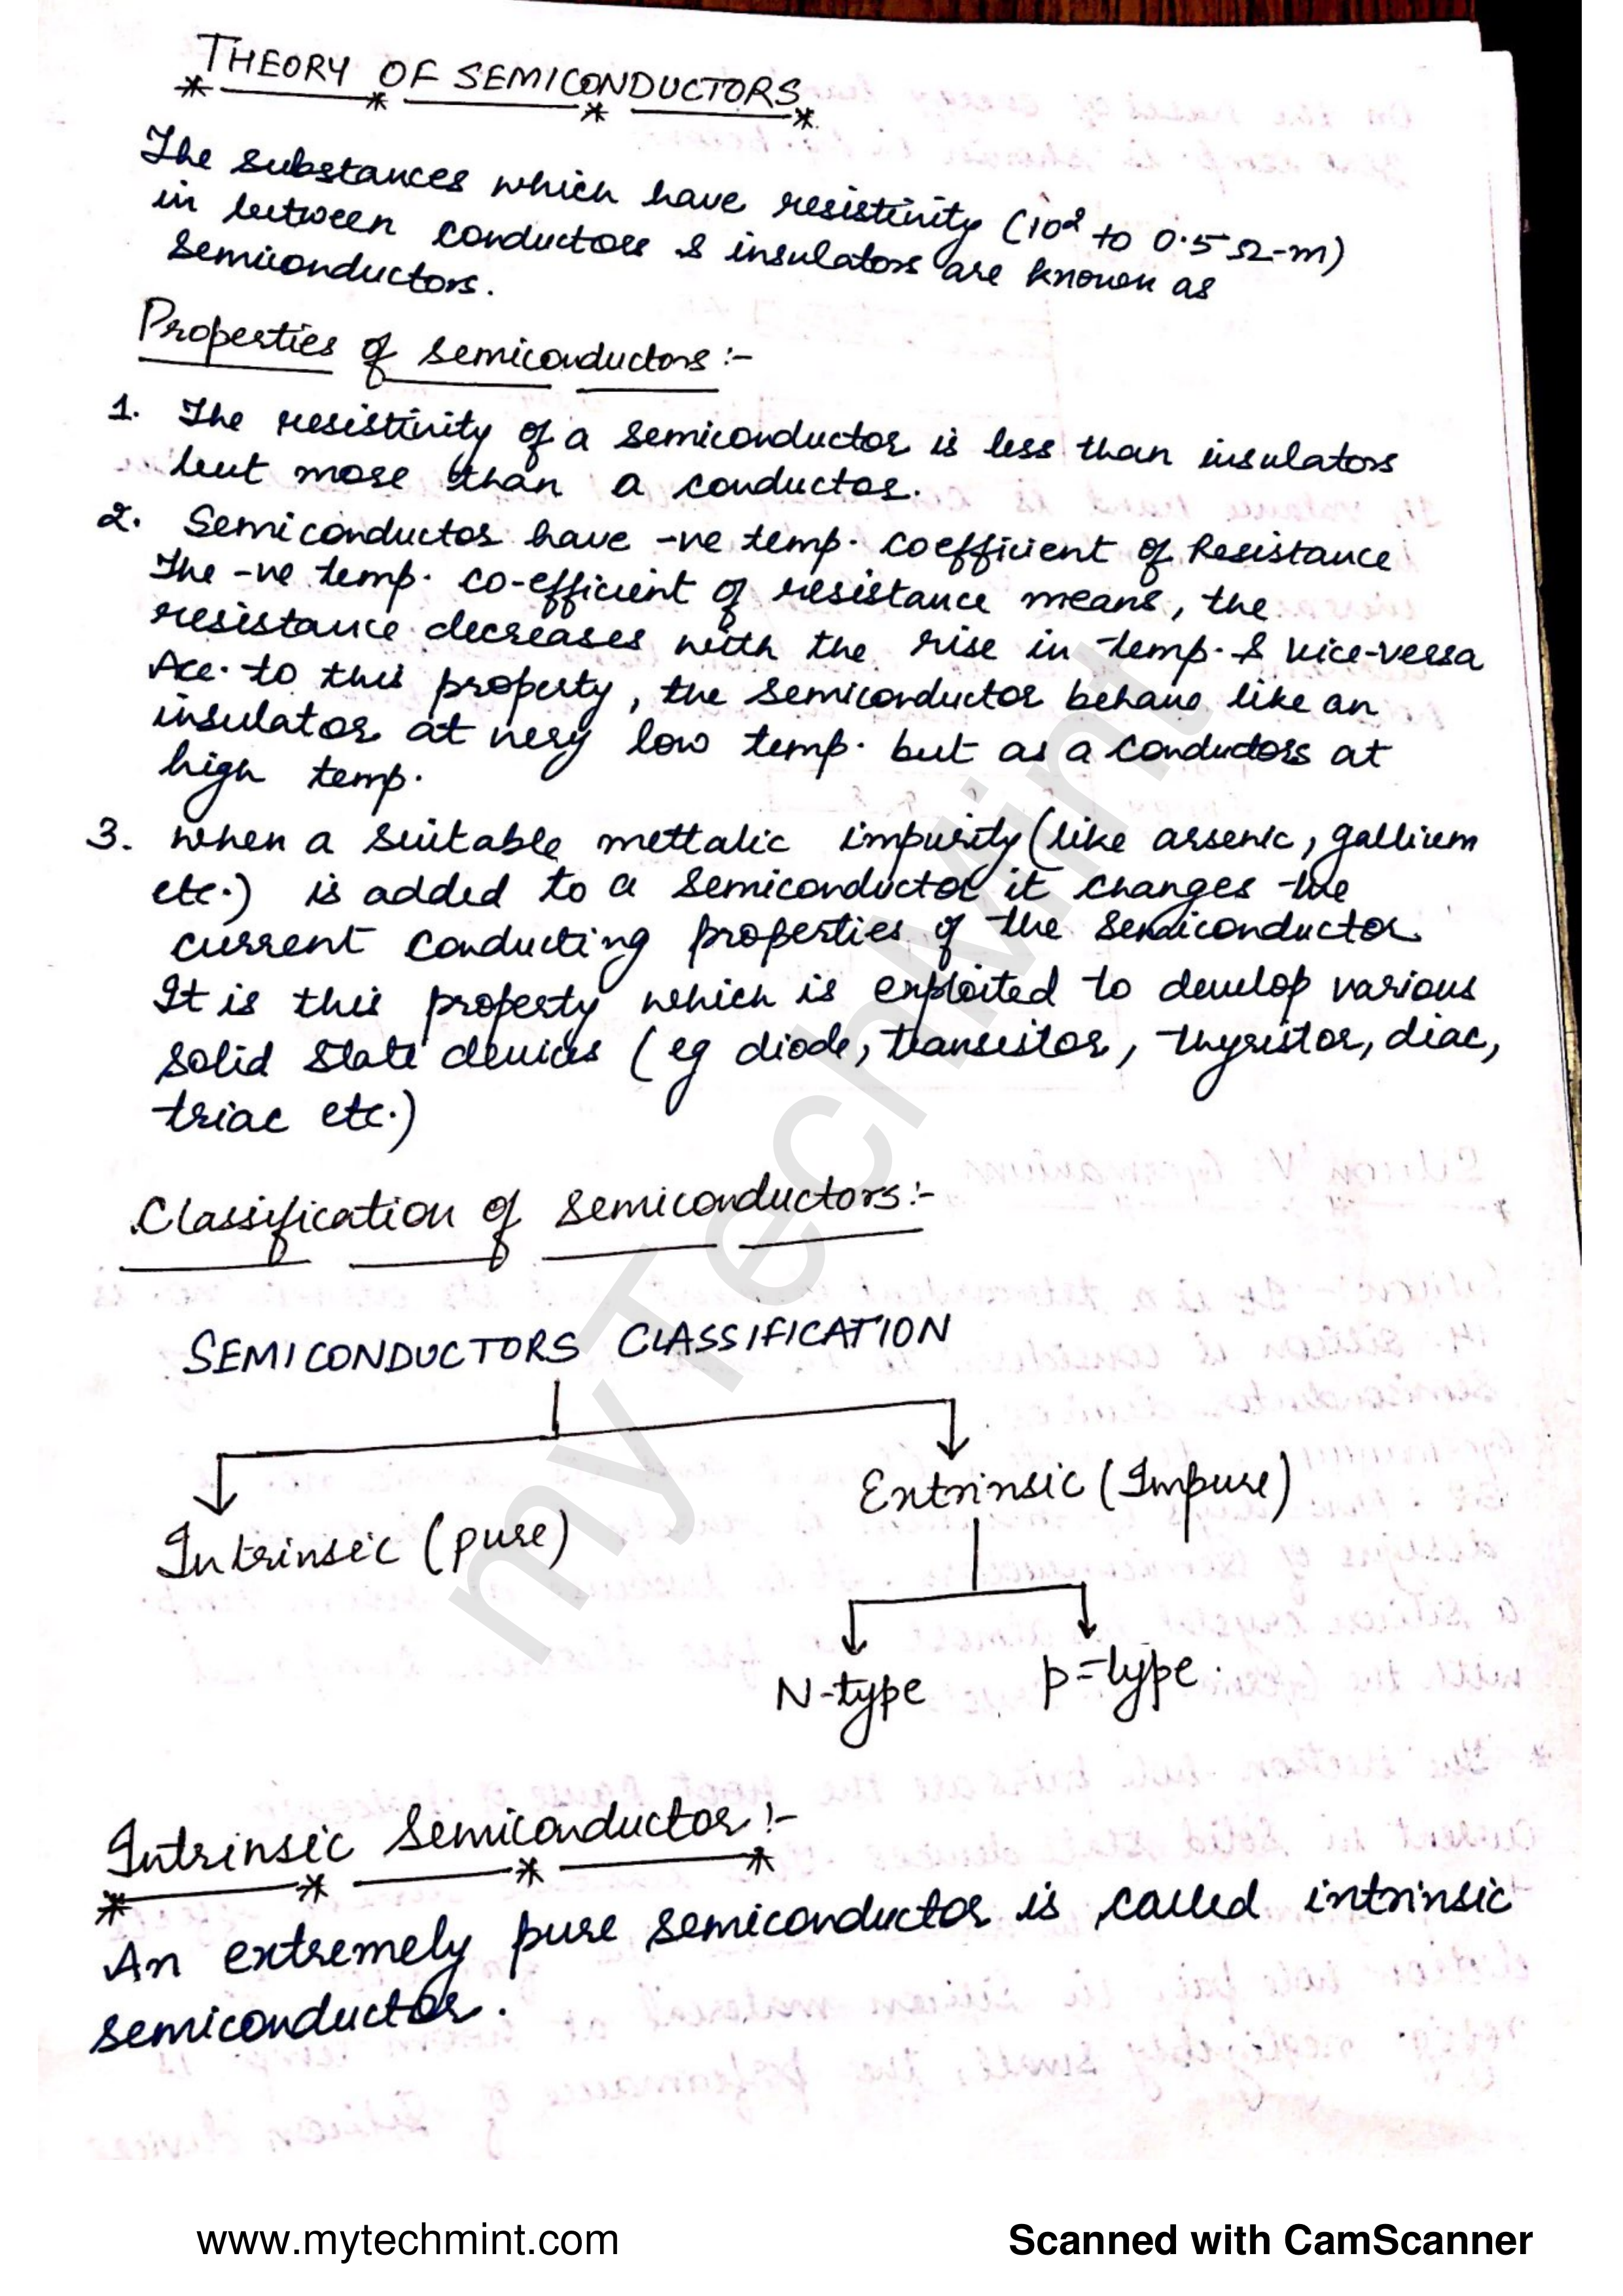 THEORY OF SEMICONDUCTORS
The substances which have resistivity (10² to 0.5 Ω-m)
in between conductors & insulators are known as
semiconductors.
Properties of semiconductors :-
1. The resistivity of a semiconductor is less than insulators
but more than a conductor.
2. Semiconductor have -ve temp. coefficient of Resistance
The -ve temp. co-efficient of resistance means, the
resistance decreases with the rise in temp. & vice-versa
Acc. to this property, the semiconductor behave like an
insulator at very low temp. but as a conductors at
high temp.
3. when a suitable mettalic impurity (like arsenic, gallium
etc.) is added to a semiconductor it changes the
current conducting properties of the semiconductor.
It is this property which is exploited to develop various
solid state devices (eg diode, transistor, thyristor, diac,
triac etc.)
Classification of semiconductors :-
SEMICONDUCTORS CLASSIFICATION
Extrinsic (Impure)
Intrinsic (pure)
N-type p-type.
Intrinsic Semiconductor :-
An extremely pure semiconductor is called intrinsic
semiconductor.
myTechMint
www.mytechmint.com Scanned with CamScanner